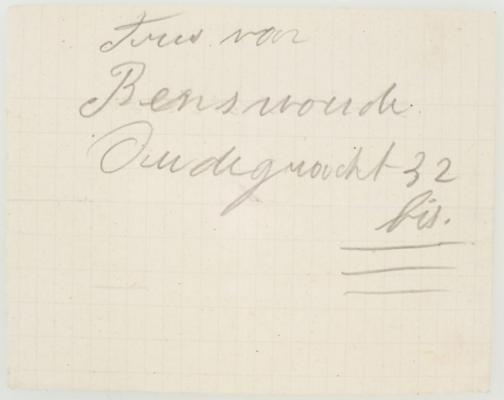 Truus van
Renswoude.
Oudegracht 32
bis.